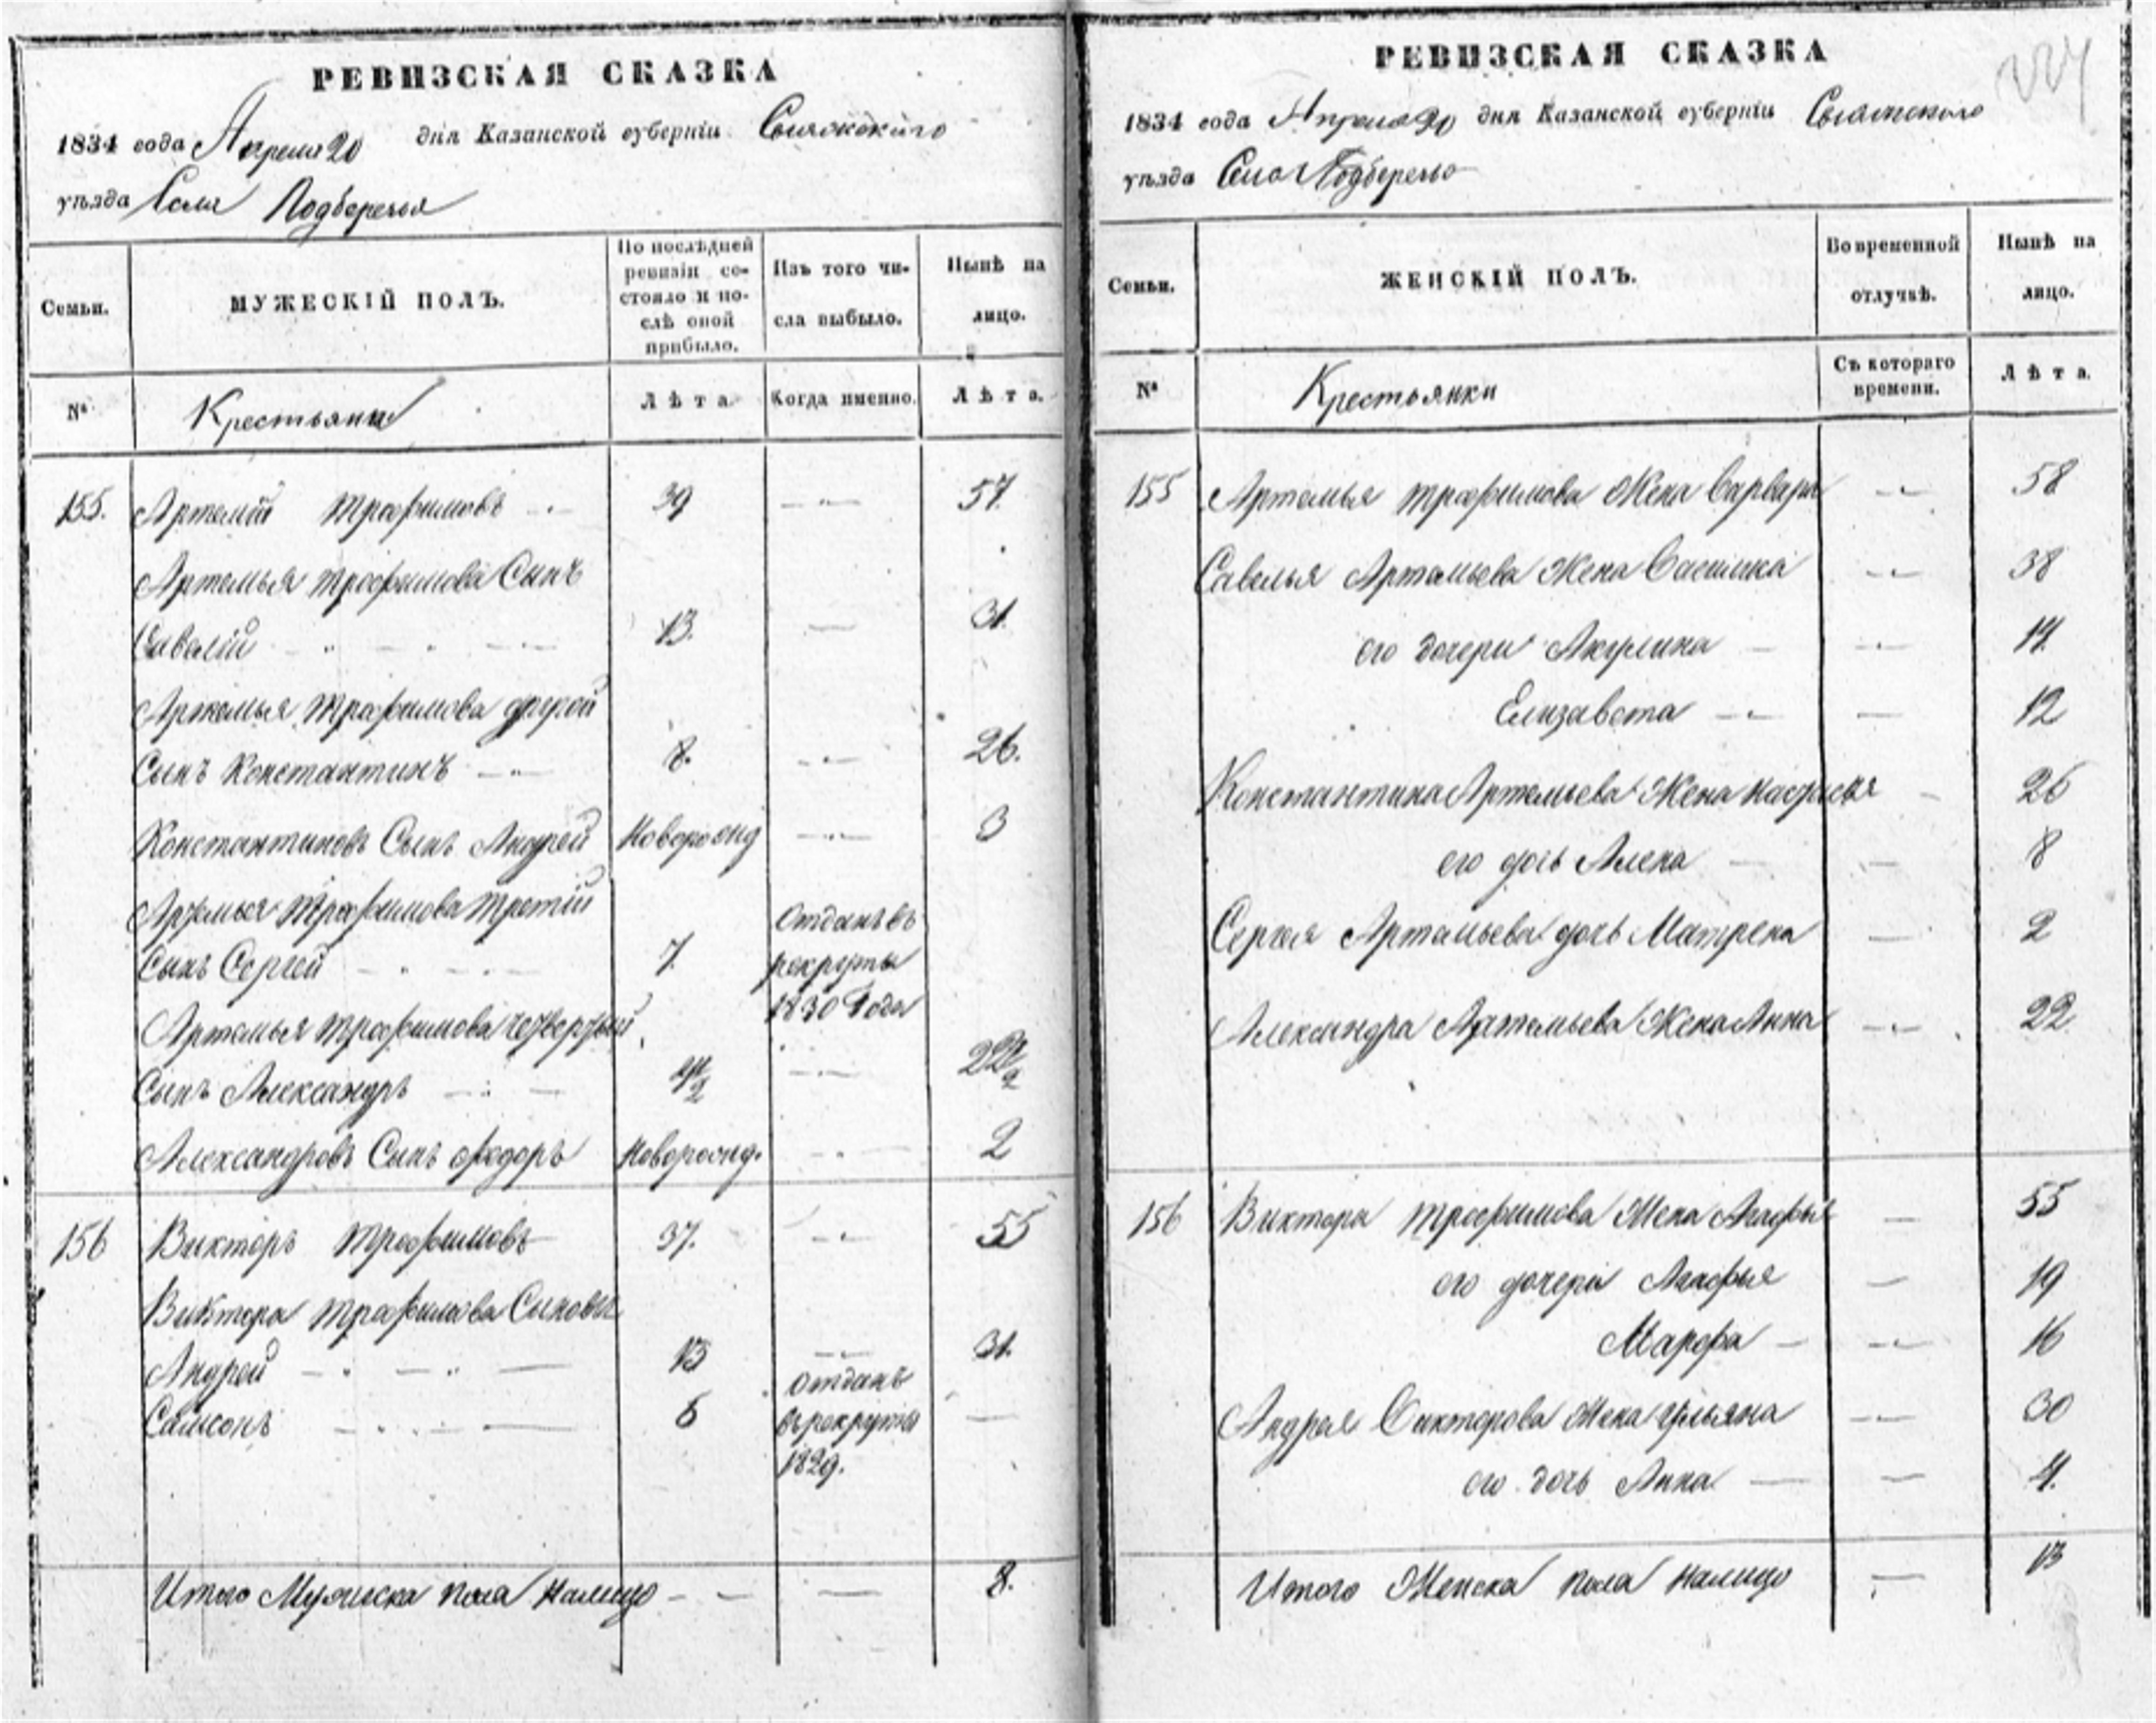 РЕВИЗСКАЯ СКАЗКА
1834 года Апреля 20 дня Казанской губерніи Свіяжскаго
уѣзда Села Подберезья
Семьи.
МУЖЕСКІЙ ПОЛЪ.
По послѣдней ревизіи состояло и послѣ оной прибыло.
Изъ того числа выбыло.
Нынѣ на лицо.
№
Крестьяне
Лѣта.
Когда именно.
Лѣта.
155. Артемій Трофимовъ 39 57.
Артемья Трофимова Сынъ
Савелій 13. 31.
Артемья Трофимова другой
Сынъ Константинъ 8. 26.
Константиновъ Сынъ Андрей Новорожд 3
Артемья Трофимова третій
Сынъ Сергей 7. Отданъ въ рекруты 1830 Года
Артемья Трофимова четвертый
Сынъ Александръ 4½ 22½
Александровъ Сынъ Федоръ Новорожд. 2
156 Викторъ Трофимовъ 37. 55
Виктора Трофимова Сыновья
Андрей 13 31.
Самсонъ 6 Отданъ въ рекруты 1829.
Итого Мужеска пола налицо 8.
РЕВИЗСКАЯ СКАЗКА
224
1834 года Апреля 20 дня Казанской губерніи Свіяжскаго
уѣзда Села Подберезья
Семьи.
ЖЕНСКІЙ ПОЛЪ.
Во временной отлучкѣ.
Нынѣ на лицо.
№
Крестьянки
Съ котораго времени.
Лѣта.
155 Артемья Трофимова Жена Варвара 58
Савелья Артемьева Жена 38
его дочери Акулина 17.
Елизавета 12
Константина Артемьева Жена Настасья 26
его дочь Алена 8
Сергея Артемьева дочь Матрена 2
Александра Артемьева Жена Анна 22
156 Виктора Трофимова Жена Агафья 55
его дочери Агафья 19
Марфа 16
Андрея Викторова Жена Ульяна 30
его дочь Анна 4.
Итого Женска пола налицо 13